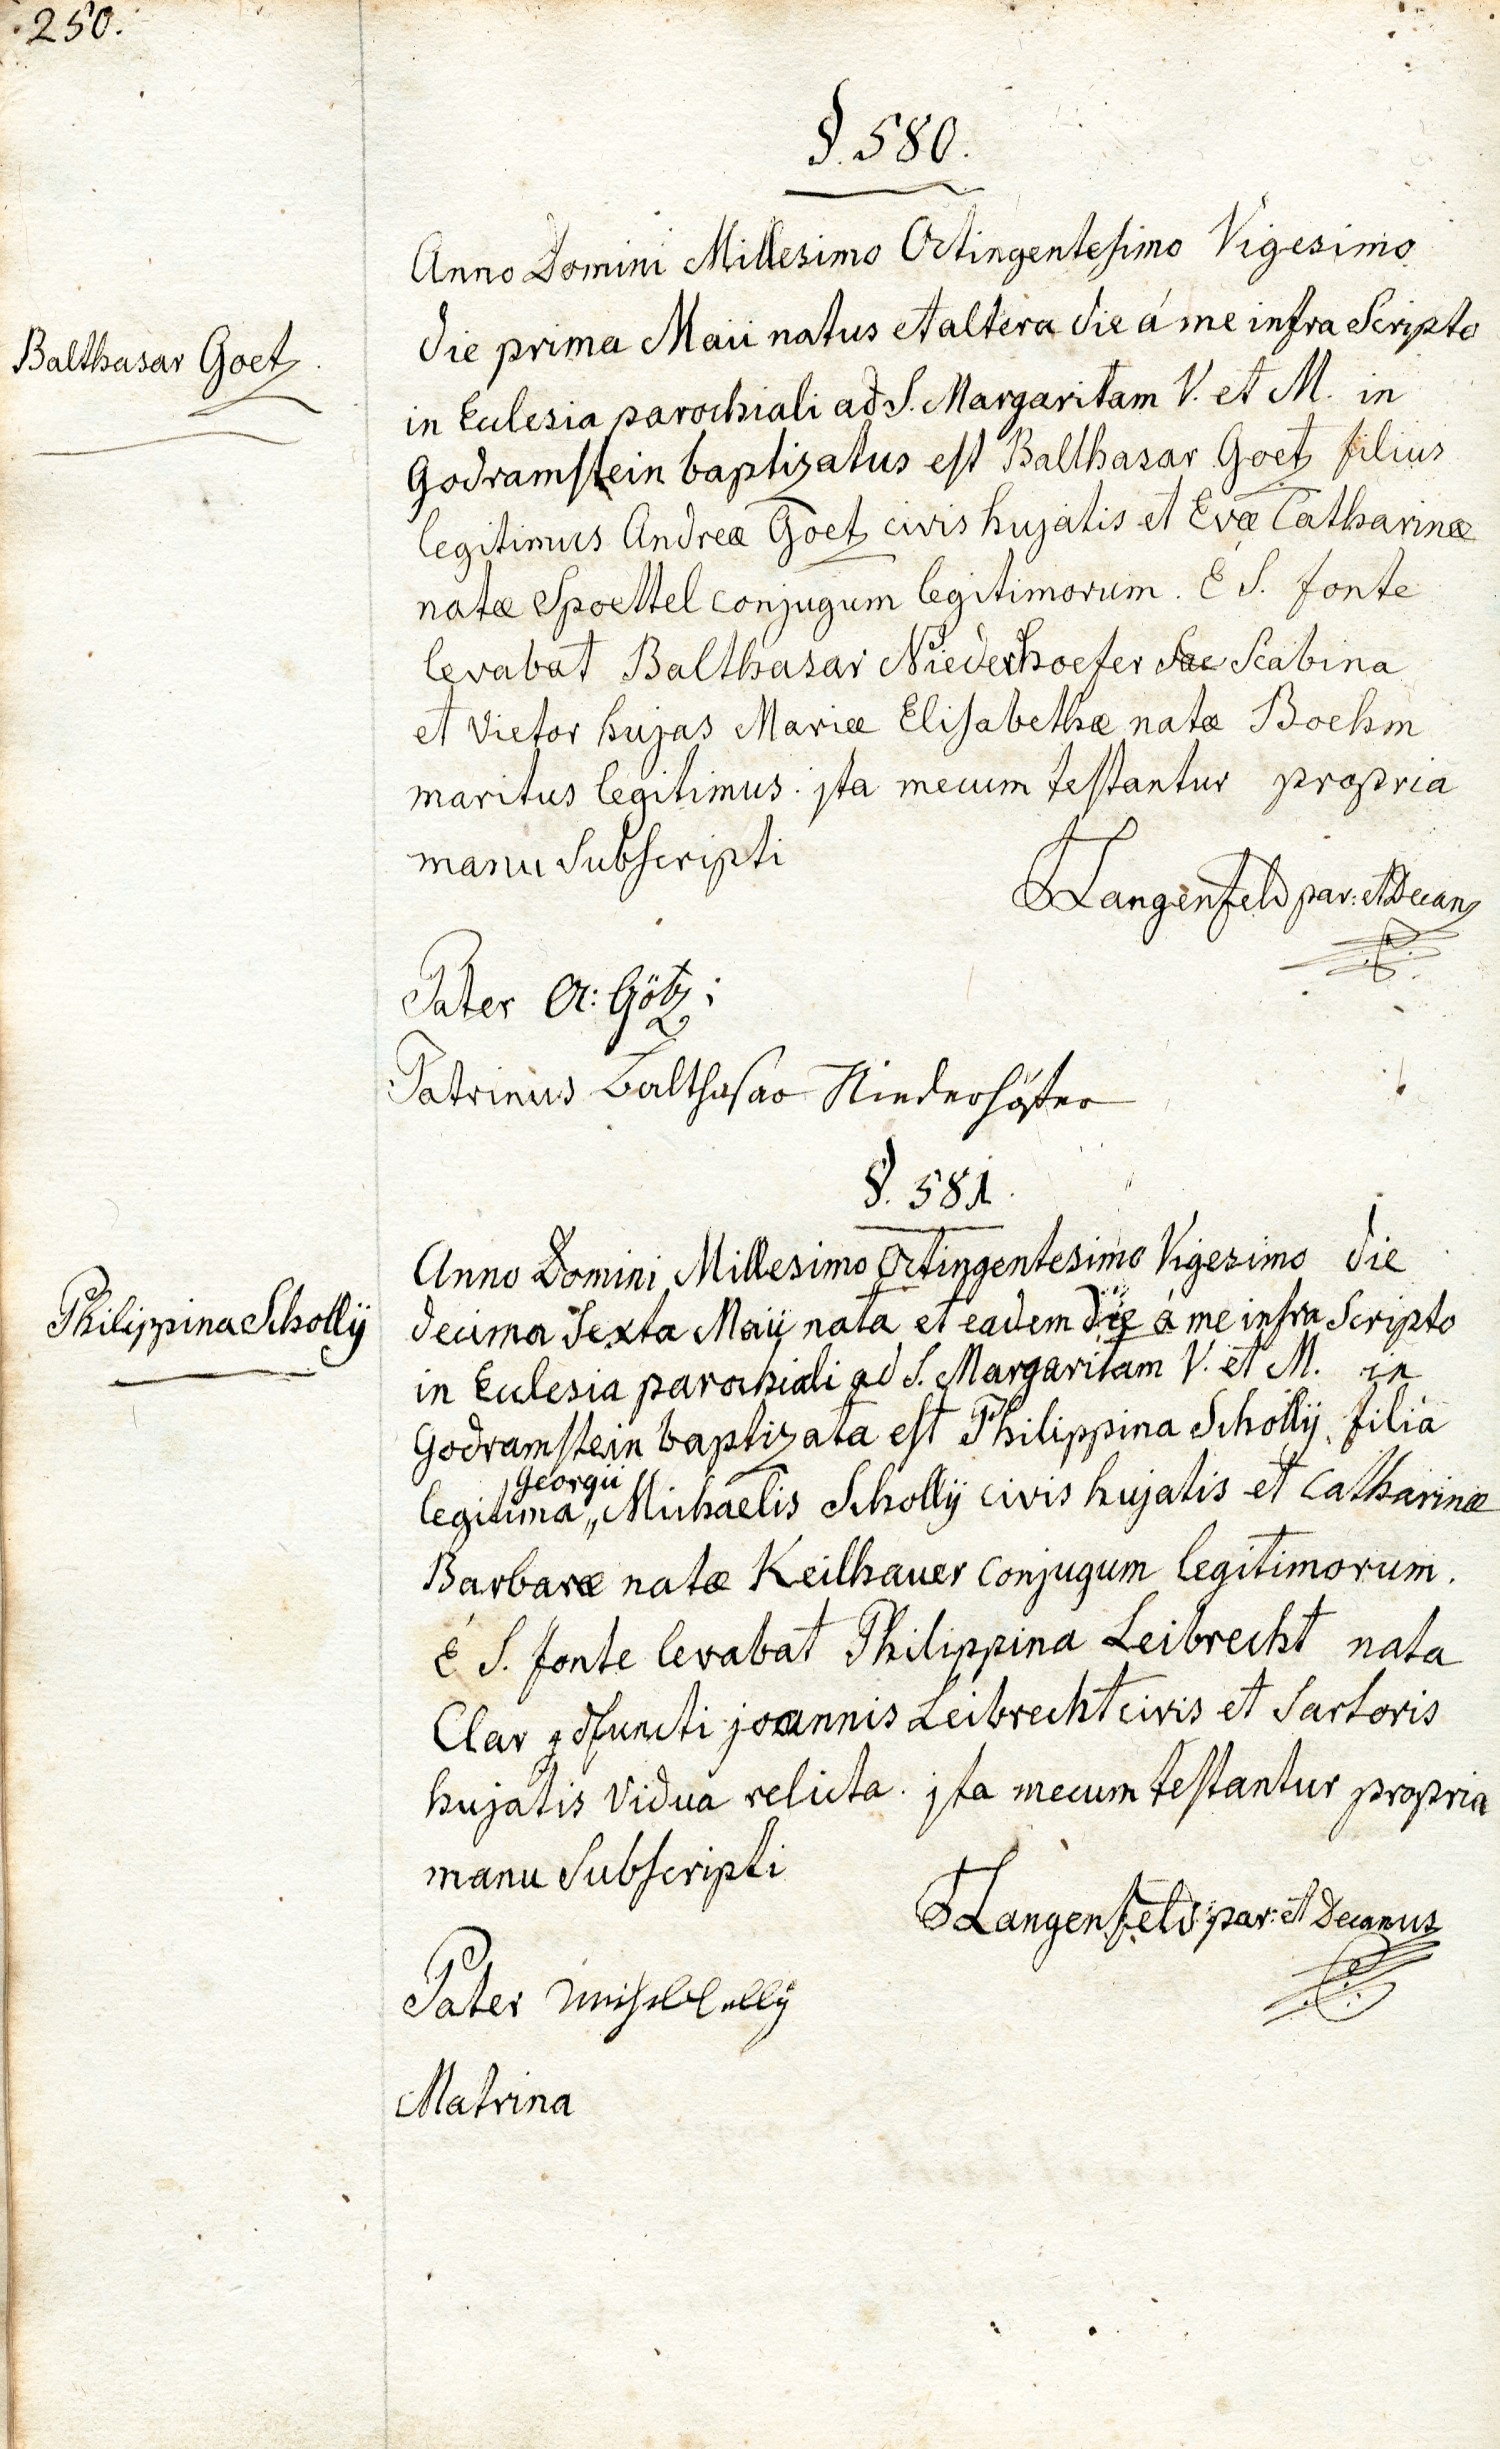 250.
§. 580.
Anno Domini Millesimo Octingentesimo Vigesimo
Balthasar Goetz.
die prima Maii natus et altera die á me infra Scripto
in Eclesia parochiali ad S. Margaritam V. et M. in
Godramstein baptizatus est Balthasar Goetz filius
legitimus Andreæ Goetz civis hujatis et Evæ Catharinæ
natæ Spoettel conjugum legitimorum. É S. fonte
levabat Balthasar Niederhoefer Scabina
et Vietor hujas Mariæ Elisabethæ natæ Boehm
maritus legitimus. jta mecum testantur propria
manu Subscripti
Langenfeld par: et Decan
Pater A: Götz;
Patrinus Balthasar Niederhöfer
§. 581.
Anno Domini Millesimo Octingentesimo Vigesimo die
Philippina Schollÿ
decima Sexta Maii nata et eadem die á me infra Scripto
in Eclesia parochiali ad S. Margaritam V. et M. in
Godramstein baptizata est Philippina Schollÿ filia
Georgii
legitima „ Michaelis Schollÿ civis hujatis et Catharinæ
Barbaræ natæ Keilhauer conjugum legitimorum.
É S. fonte levabat Philippina Leibrecht nata
Clar dfuncti joannis Leibrecht civis et Sartoris
hujatis Vidua relicta. jta mecum testantur propria
manu Subscripti
Langenfeld par: et Decanus
Pater
Matrina